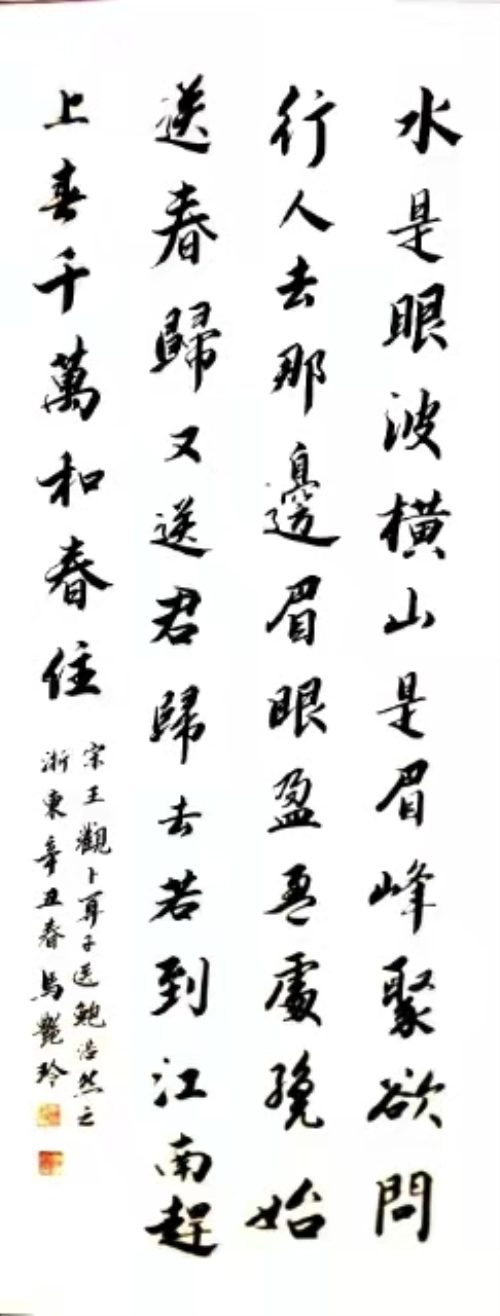 水是眼波橫山是眉峰聚欲問
行人去那邊眉眼盈盈處纔始
送春歸又送君歸去若到江南趕
上春千萬和春住
宋王觀卜算子送鮑浩然之
浙東辛丑春馬艷玲